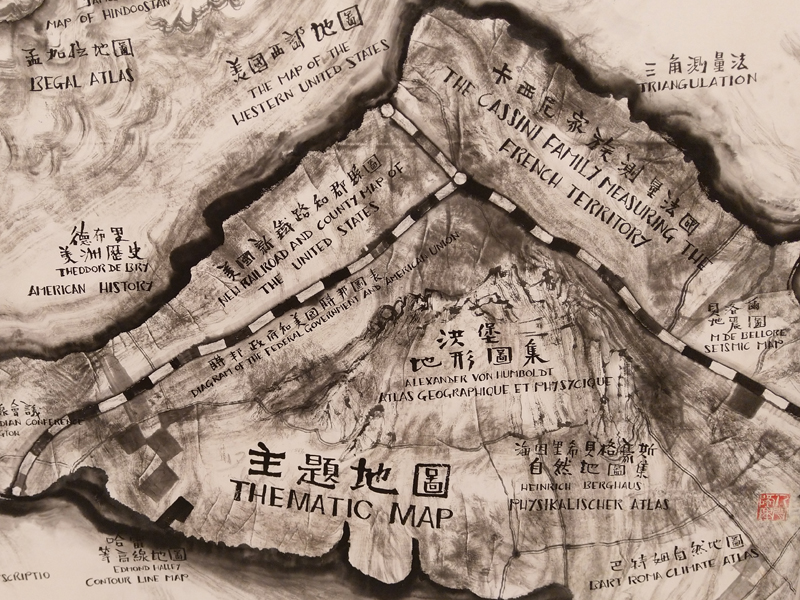 MAP OF HINDOOSTAN
孟加拉地圖
BEGAL ATLAS
美國西部地圖
THE MAP OF THE
WESTERN UNITED STATES
三角測量法
TRIANGULATION
卡西尼家族測量法國
THE CASSINI FAMILY MEASURING THE
FRENCH TERRITORY
美國新鐵路和郡縣圖
NEW RAILROAD AND COUNTY MAP OF
THE UNITED STATES
德布里
美洲歷史
THEODOR DE BRY
AMERICAN HISTORY
聯邦政府和美國聯邦圖表
DIAGRAM OF THE FEDERAL GOVERNMENT AND AMERICAN UNION
洪堡
地形圖集
ALEXANDER VON HUMBOLDT
ATLAS GEOGRAPHIQUE ET PHYSYCIQUE
地震圖
M DE BELLORE
SEISMIC MAP
主題地圖
THEMATIC MAP
海因里希貝格豪斯
自然地圖集
HEINRICH BERGHAUS
PHYSIKALISCHER ATLAS
等高線地圖
EDMOND HALLEY
CONTOUR LINE MAP
SCRIPTIO
巴特姆自然地圖
BART ROMA CLIMATE ATLAS